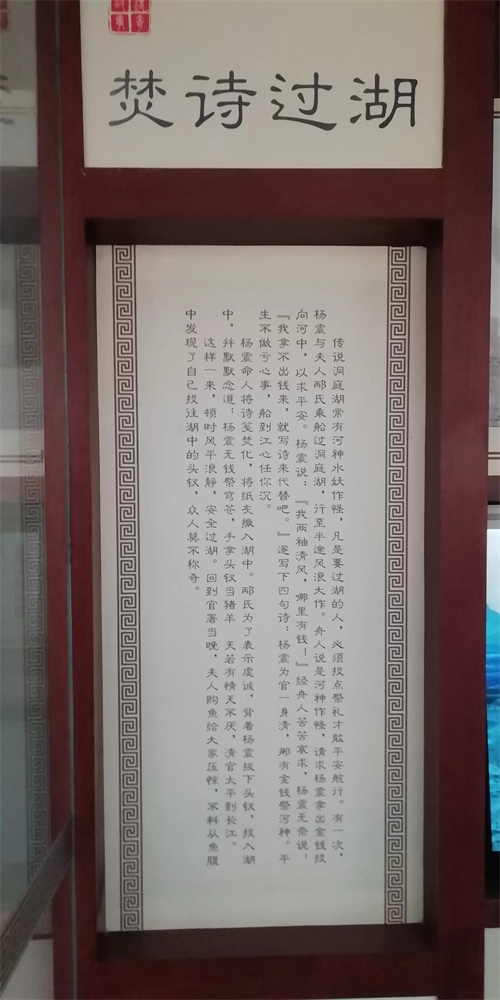 焚诗过湖
传说洞庭湖常有河神水妖作怪，凡是要过湖的人，必须投点祭礼才能平安航行。有一次，
杨震与夫人邴氏乘船过洞庭湖，行至半途风浪大作。舟人说是河神作怪，请求杨震拿出金钱投
向河中，以求平安。杨震说：『我两袖清风，哪里有钱！』经舟人苦苦哀求，杨震无奈说：
『我拿不出钱来，就写诗来代替吧。』遂写下四句诗：杨震为官一身清，那有金钱祭河神。平
生不做亏心事，船到江心任你沉。
杨震命人将诗笺焚化，将纸灰撒入湖中。邴氏为了表示虔诚，背着杨震拔下头钗，投入湖
中，并默默念道：杨震无钱祭穹苍，手拿头钗当猪羊 天若有情天不厌，清官太平到长江。
这样一来，顿时风平浪静，安全过湖。回到官署当晚，夫人购鱼给大家压惊，不料从鱼腹
中发现了自己投往湖中的头钗，众人莫不称奇。